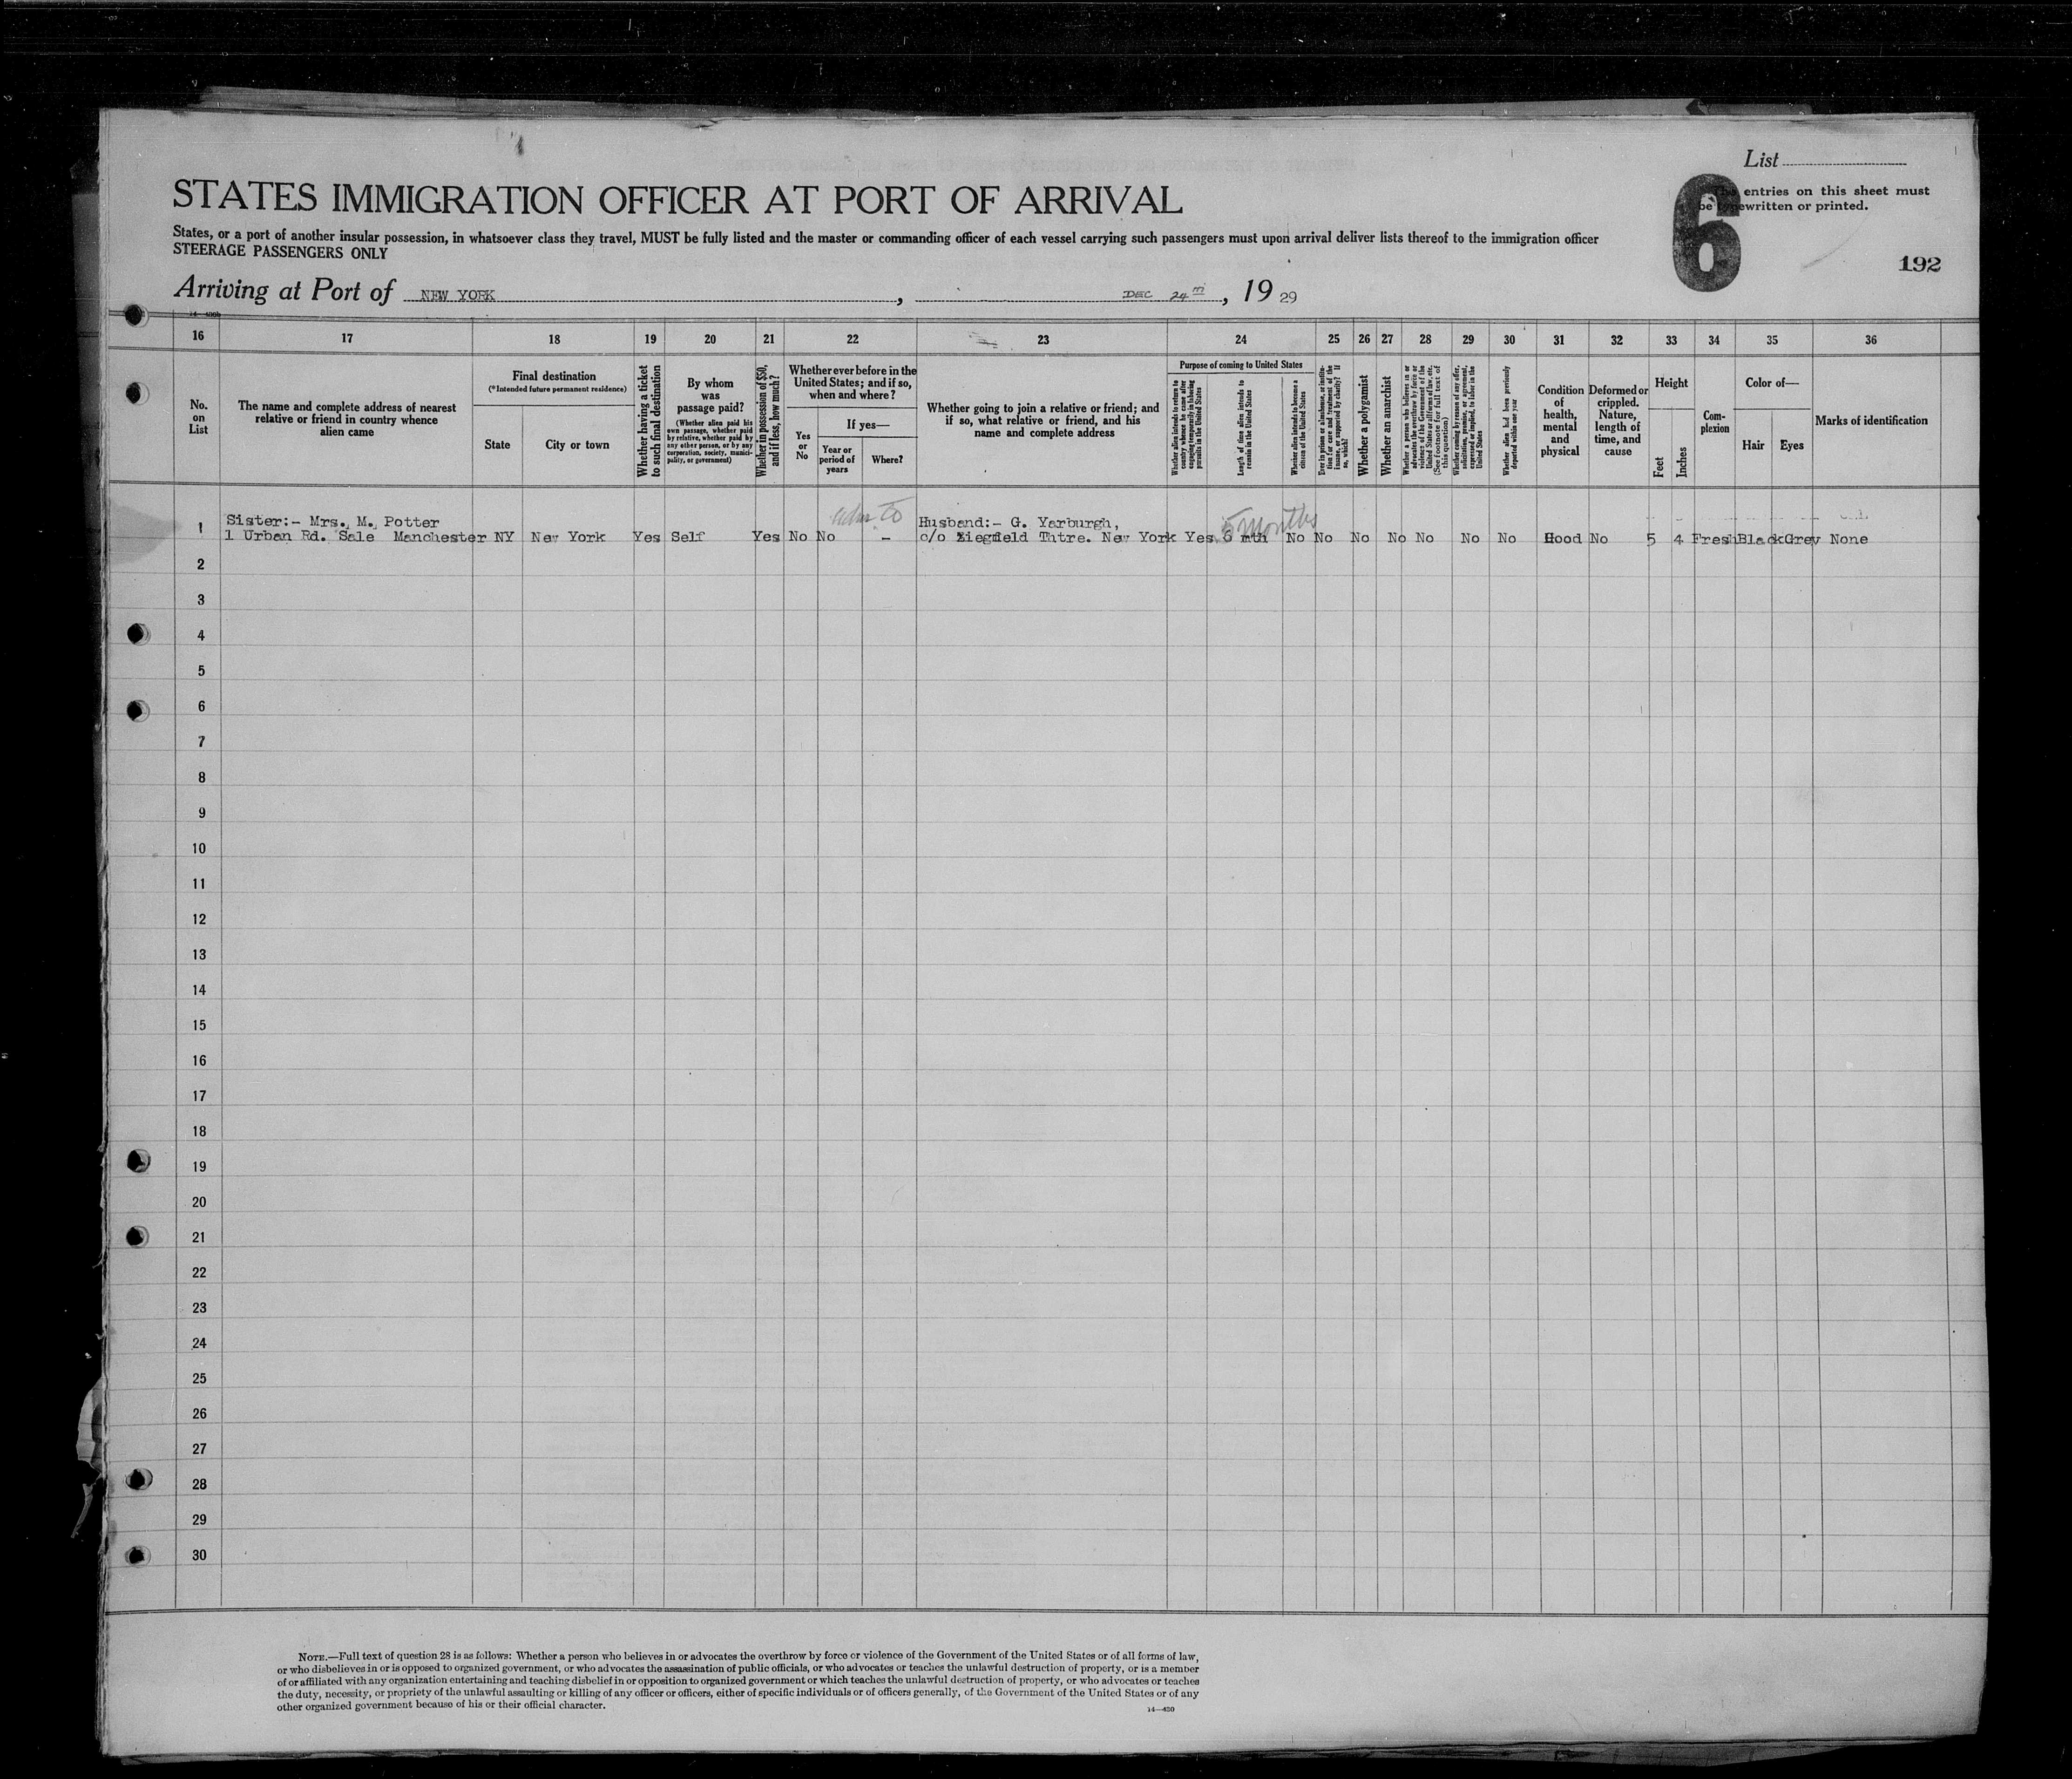 List
6
The entries on this sheet must
be typewritten or printed.
STATES IMMIGRATION OFFICER AT PORT OF ARRIVAL
States, or a port of another insular possession, in whatsoever class they travel, MUST be fully listed and the master or commanding officer of each vessel carrying such passengers must upon arrival deliver lists thereof to the immigration officer
STEERAGE PASSENGERS ONLY
192
Arriving at Port of NEW YORK, DEC 24th, 19 29
16 17 18 19 20 21 22 23 24 25 26 27 28 29 30 31 32 33 34 35 36
No. on List
The name and complete address of nearest
relative or friend in country whence
alien came
Final destination
(*Intended future permanent residence)
State
City or town
Whether having a ticket
to such final destination
By whom
was
passage paid?
(Whether alien paid his
own passage, whether paid
by relative, whether paid by
any other person, or by any
corporation, society, munici-
pality, or government)
Whether in possession of $50,
and if less, how much?
Whether ever before in the
United States; and if so,
when and where?
Yes
or
No
If yes—
Year or
period of
years
Where?
Whether going to join a relative or friend; and
if so, what relative or friend, and his
name and complete address
Purpose of coming to United States
Whether alien intends to return to
country whence he came after
engaging temporarily in laboring
pursuits in the United States
Length of time alien intends to
remain in the United States
Whether alien intends to become a
citizen of the United States
Ever in prison or almshouse, or institu-
tion for care and treatment of the
insane, or supported by charity? If
so, which?
Whether a polygamist
Whether an anarchist
Whether a person who believes in or
advocates the overthrow by force or
violence of the Government of the
United States or all forms of law, etc.
(See footnote for full text of
this question)
Whether coming by reason of any offer,
solicitation, promise, or agreement,
expressed or implied, to labor in the
United States
Whether alien had been previously
deported within one year
Condition
of
health,
mental
and
physical
Deformed or
crippled.
Nature,
length of
time, and
cause
Height
Feet
Inches
Com-
plexion
Color of—
Hair
Eyes
Marks of identification
Sister:- Mrs. M. Potter Husband:- G. Yarburgh, 5 months
1 1 Urban Rd. Sale Manchester NY New York Yes Self Yes No No - c/o Ziegfield Thtre. New York Yes 6 mth No No No No No No No Good No 5 4 Fresh Black Grey None
2
3
4
5
6
7
8
9
10
11
12
13
14
15
16
17
18
19
20
21
22
23
24
25
26
27
28
29
30
NOTE.—Full text of question 28 is as follows: Whether a person who believes in or advocates the overthrow by force or violence of the Government of the United States or of all forms of law,
or who disbelieves in or is opposed to organized government, or who advocates the assassination of public officials, or who advocates or teaches the unlawful destruction of property, or is a member
of or affiliated with any organization entertaining and teaching disbelief in or opposition to organized government or which teaches the unlawful destruction of property, or who advocates or teaches
the duty, necessity, or propriety of the unlawful assaulting or killing of any officer or officers, either of specific individuals or of officers generally, of the Government of the United States or of any
other organized government because of his or their official character.
14—430